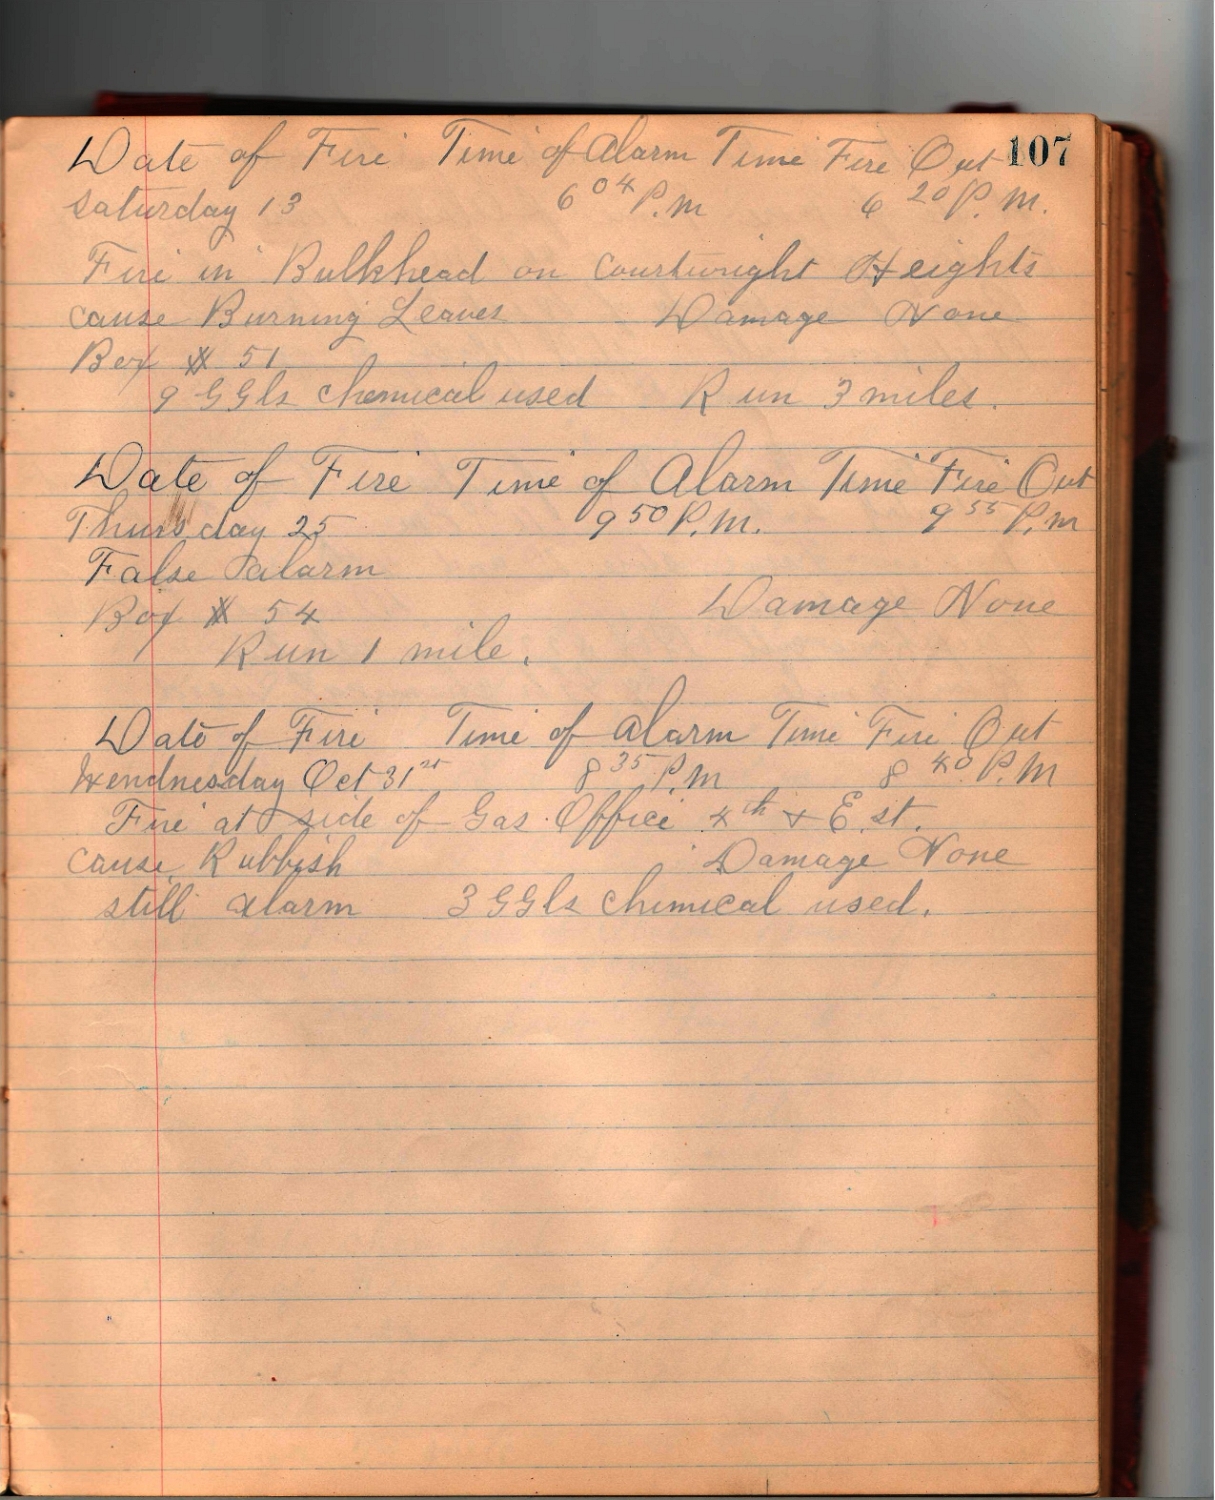 Date of Fire Time of Alarm Time Fire Out 107
Saturday 13 6 04 P.M 6 20 P.M.
Fire in Bulkhead on Courtwright Heights
cause Burning Leaves Damage None
Box # 51
9 GGls chemical used Run 3 miles.
Date of Fire Time of Alarm Time Fire Out
Thursday 25 9 50 P.M. 9 55 P.M
False Alarm
Box # 54 Damage None
Run 1 mile.
Date of Fire Time of Alarm Time Fire Out
Wendnesday Oct 31st 8 35 P.M 8 40 P.M
Fire at side of Gas Office 4th & E. st.
cause Rubbish Damage None
still alarm 3 GGls chemical used.